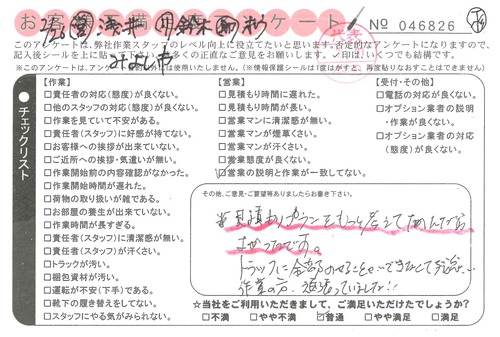 お客様不満足アンケート
No 046826
このアンケートは、弊社作業スタッフのレベル向上に役立てたいと思います。否定的なアンケートになりますので、
記入後シールを上に貼って
多くの正直なご意見をお願いします。✓印は、いくつでも結構です。
【作業】
□責任者の対応(態度)が良くない。
□他のスタッフの対応(態度)が良くない。
□作業を見ていて不安がある。
□責任者(スタッフ)に好感が持てない。
□お客様への挨拶が出来ていない。
□ご近所への挨拶・気遣いが無い。
□作業開始前の内容確認がなかった。
□作業開始時間が遅れた。
□荷物の取り扱いが雑である。
□お部屋の養生が出来ていない。
□作業時間が長すぎる。
□責任者(スタッフ)に清潔感が無い。
□責任者(スタッフ)が汗くさい。
□トラックが汚い。
□梱包資材が汚い。
□運転が安心(下手)である。
□靴下の履き替えをしてない。
□スタッフにやる気がみられない。
【営業】
□見積もりに遅れた。
□見積もり時間が長い。
□営業マンに清潔感が無い。
□営業マンが煙草くさい。
□営業マンが汗くさい。
□営業態度が良くない。
☑営業の説明と作業が一致してない。
【受付・その他】
□電話の対応が良くない。
□オプション業者の説明
・作業が良くない。
□オプション業者の対応
(態度)が良くない。
チェックリスト
その他、ご意見・ご要望等ありましたらお書き下さい。
見積もりプランをもっと考えてくれたなら
よかったです。
トラックに全部のせることができなくて
作業の方、頑張っていました!!
☆当社をご利用いただきまして、ご満足いただけたでしょうか?
□不満 □やや不満 ☑普通 □やや満足 □満足